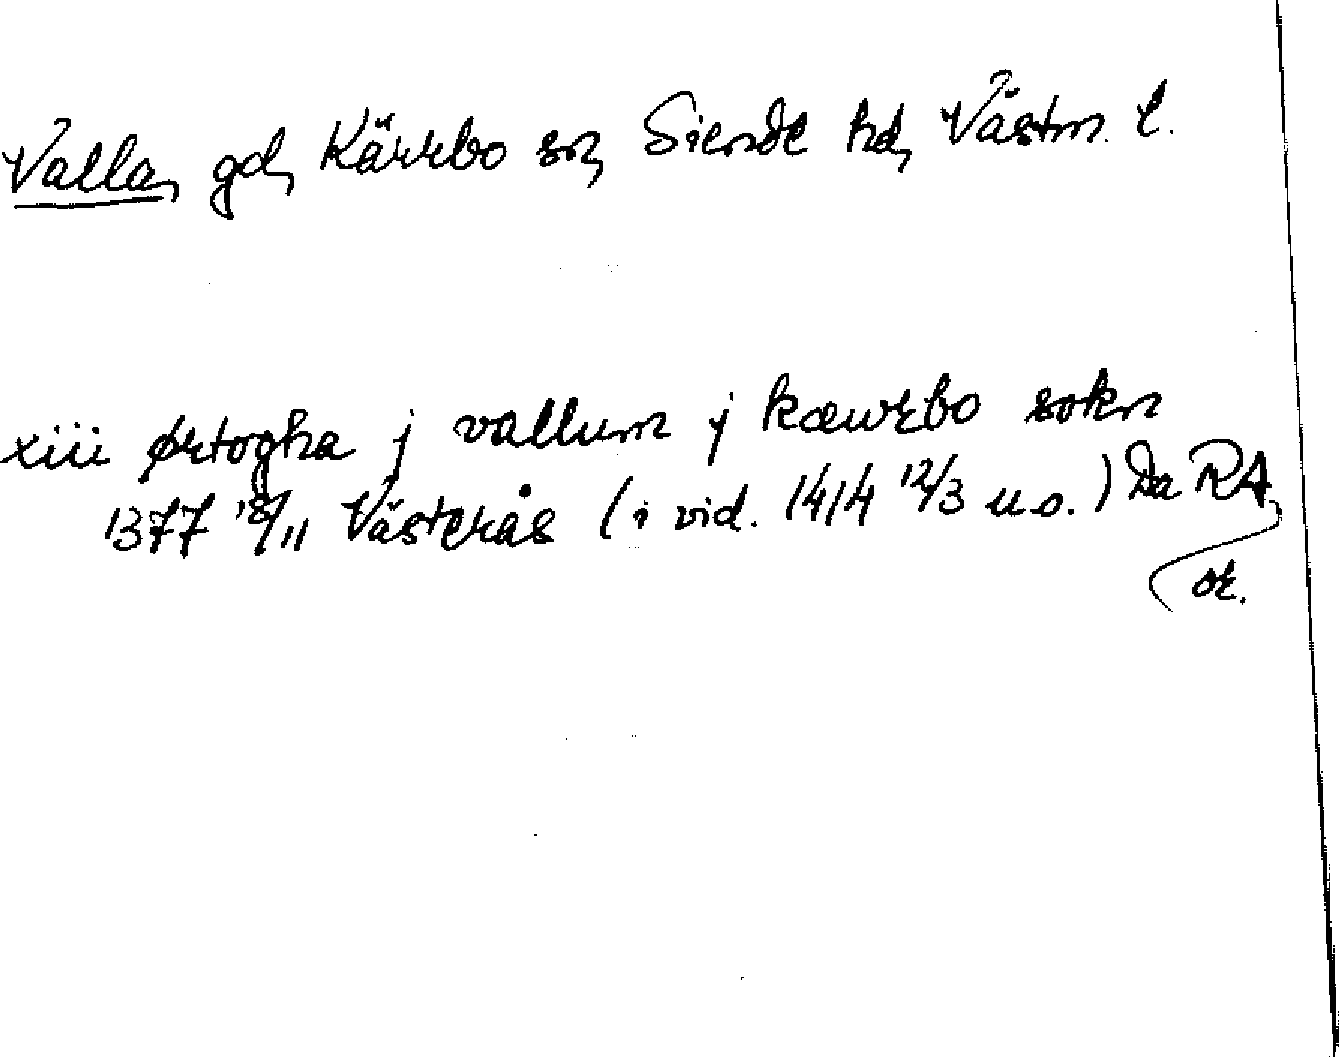 Valla, gd, Kärrbo sn, Siende hd, Västm. l.
xiii ørtogha j vallum j kæwrbo sokn
1377 18/11 Västerås (i vid. 1414 12/3 u.o.) Da RA,
or.